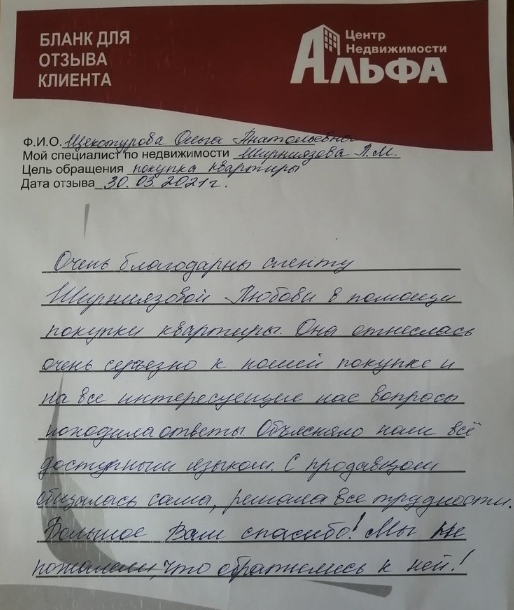 БЛАНК ДЛЯ
ОТЗЫВА
КЛИЕНТА
Центр
Недвижимости
АЛЬФА
Ф.И.О. Щекотурова Ольга Анатольевна
Мой специалист по недвижимости Ширниязова Л.М.
Цель обращения покупка квартиры
Дата отзыва 30.03.2021г.
Очень благодарны агенту
Ширниязовой Любови в помощи
покупки квартиры. Она отнеслась
очень серьезно к нашей покупке и
на все интересующие нас вопросы
находила ответы. Объясняла нам всё
доступным языком. С продавцом
связалась сама, решала все трудности.
Большое Вам спасибо! Мы не
пожалели, что обратились к ней!